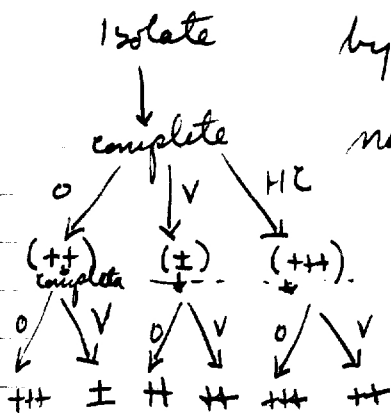 Isolate by
complete
O V HC
(++) (±) (+++)
complete
O V O V O V
+++ ± ++ ++ +++ ++